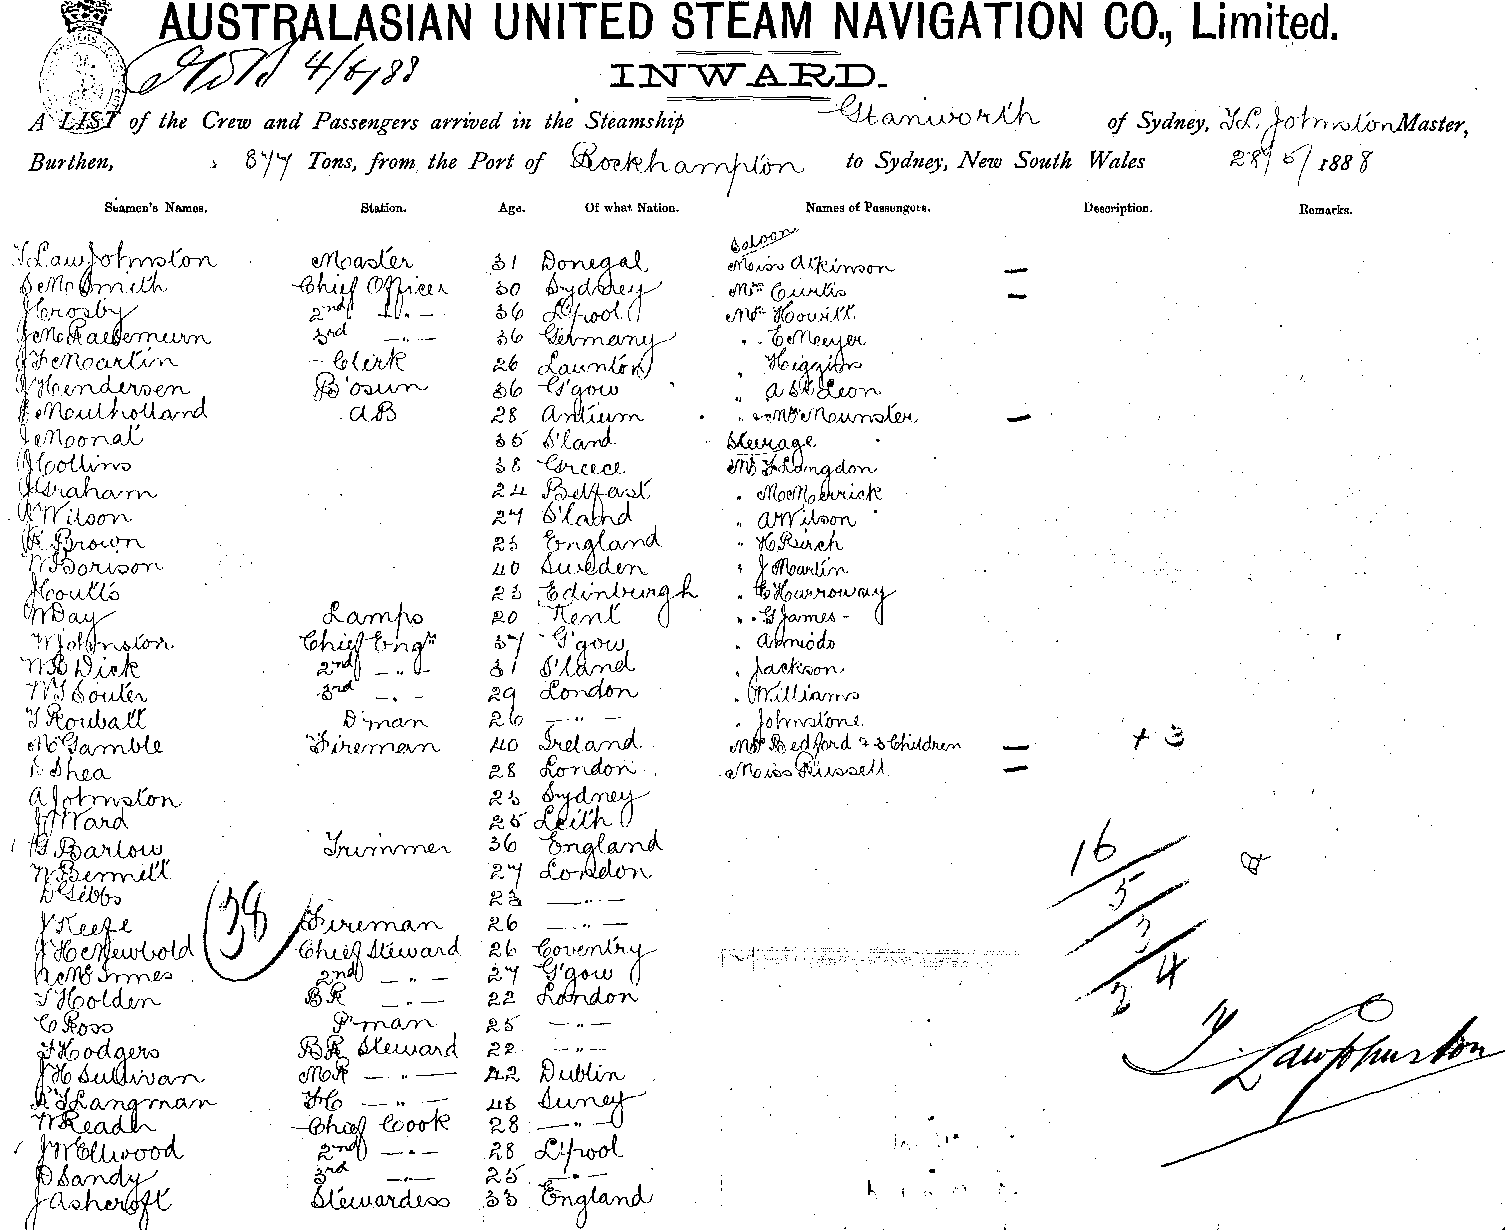 AUSTRALASIAN UNITED STEAM NAVIGATION CO., Limited.
4/6/88
INWARD.
A LIST of the Crew and Passengers arrived in the Steamship Stanworth of Sydney, T L Johnston Master,
Burthen, 877 Tons, from the Port of Rockhampton to Sydney, New South Wales 28/5/1888
Seamen's Names. Station. Age. Of what Nation. Names of Passengers. Description. Remarks.
Saloon
T Law Johnston Master 31 Donegal Miss Atkinson —
Smith Chief Officer 30 Sydney Mrs Curtis —
J Crosby 2nd -"- 36 L'pool Mr Howitt
3rd -"- 36 Germany " E Meyer
J F Martin Clerk 26 Launton " Higgins
J Hendersen B'osun 36 G'gow " A St Leon
J Mulholland AB 28 Antium " Munster —
35 S'land Steerage
J Collins 38 Greece Mr F Langdon
J Graham 24 Belfast " Merrick
Wilson 27 S'land " A Wilson
Brown 23 England " H Birch
W Borison 40 Sweden " J Martin
J Coutts 23 Edinburgh " C Harroway
W Day Lamps 20 Kent " G James
W Johnston Chief Engr 37 G'gow "
W B Dick 2nd -"- 31 S'land " Jackson
W Souter 3rd -"- 29 London " Williams
T Rouball D'man 26 -"- " Johnstone
Gamble Fireman 40 Ireland Mrs Bedford & 3 Children — + 3
Shea 28 London Miss Russell —
A Johnston 23 Sydney
J Ward 25 Leith
G Barlow Trimmer 36 England
W Bennett 27 London
16
Gibbs 23 -"-
5
J Keefe Fireman 26 -"-
38
3
J H Newbold Chief Steward 26 Coventry
4
McInnes 2nd -"- 27 G'gow
T Holden BR -"- 22 London
3
C Ross P'man 25 -"-
T Law Johnston
F Hodgers BR Steward 22 -"-
J H Sullivan MR -"- 42 Dublin
Langman FC -"- 43 Surrey
W Reader Chief Cook 28 -"-
J W Ellwood 2nd -"- 28 L'pool
D Sandy 3rd -"- 25 -"-
J Ashcroft Stewardess 33 England